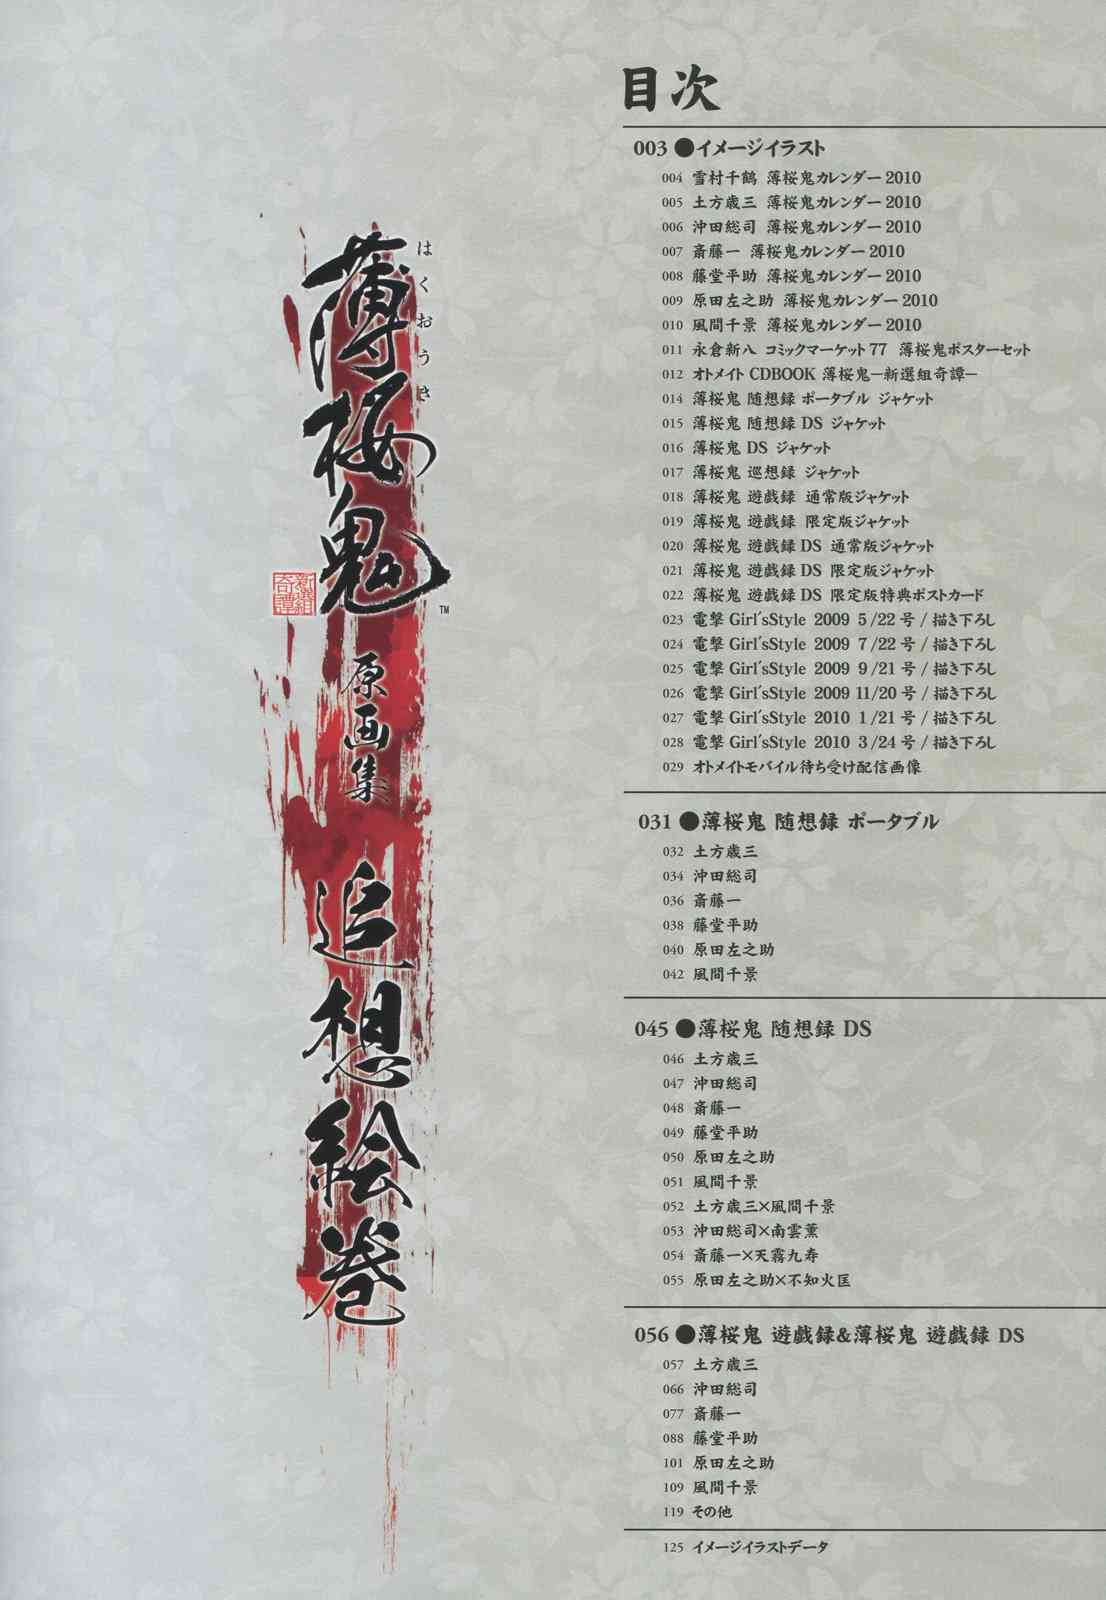 目次
003 ●イメージイラスト
004 雪村千鶴 薄桜鬼カレンダー2010
005 土方歳三 薄桜鬼カレンダー2010
006 沖田総司 薄桜鬼カレンダー2010
007 斎藤一 薄桜鬼カレンダー2010
008 藤堂平助 薄桜鬼カレンダー2010
009 原田左之助 薄桜鬼カレンダー2010
010 風間千景 薄桜鬼カレンダー2010
011 永倉新八 コミックマーケット77 薄桜鬼ポスターセット
012 オトメイト CDBOOK 薄桜鬼―新選組奇譚―
014 薄桜鬼 随想録 ポータブル ジャケット
015 薄桜鬼 随想録 DS ジャケット
016 薄桜鬼 DS ジャケット
017 薄桜鬼 巡想録 ジャケット
018 薄桜鬼 遊戯録 通常版ジャケット
019 薄桜鬼 遊戯録 限定版ジャケット
020 薄桜鬼 遊戯録DS 通常版ジャケット
021 薄桜鬼 遊戯録DS 限定版ジャケット
022 薄桜鬼 遊戯録DS 限定版特典ポストカード
023 電撃Girl'sStyle 2009 5/22号/描き下ろし
024 電撃Girl'sStyle 2009 7/22号/描き下ろし
025 電撃Girl'sStyle 2009 9/21号/描き下ろし
026 電撃Girl'sStyle 2009 11/20号/描き下ろし
027 電撃Girl'sStyle 2010 1/21号/描き下ろし
028 電撃Girl'sStyle 2010 3/24号/描き下ろし
029 オトメイトモバイル待ち受け配信画像
031 ●薄桜鬼 随想録 ポータブル
032 土方歳三
034 沖田総司
036 斎藤一
038 藤堂平助
040 原田左之助
042 風間千景
045 ●薄桜鬼 随想録 DS
046 土方歳三
047 沖田総司
048 斎藤一
049 藤堂平助
050 原田左之助
051 風間千景
052 土方歳三×風間千景
053 沖田総司×南雲薫
054 斎藤一×天霧九寿
055 原田左之助×不知火匡
056 ●薄桜鬼 遊戯録&薄桜鬼 遊戯録 DS
057 土方歳三
066 沖田総司
077 斎藤一
088 藤堂平助
101 原田左之助
109 風間千景
119 その他
125 イメージイラストデータ
はくおうき
薄桜鬼
TM
新選組
奇譚
原画集
追想絵巻